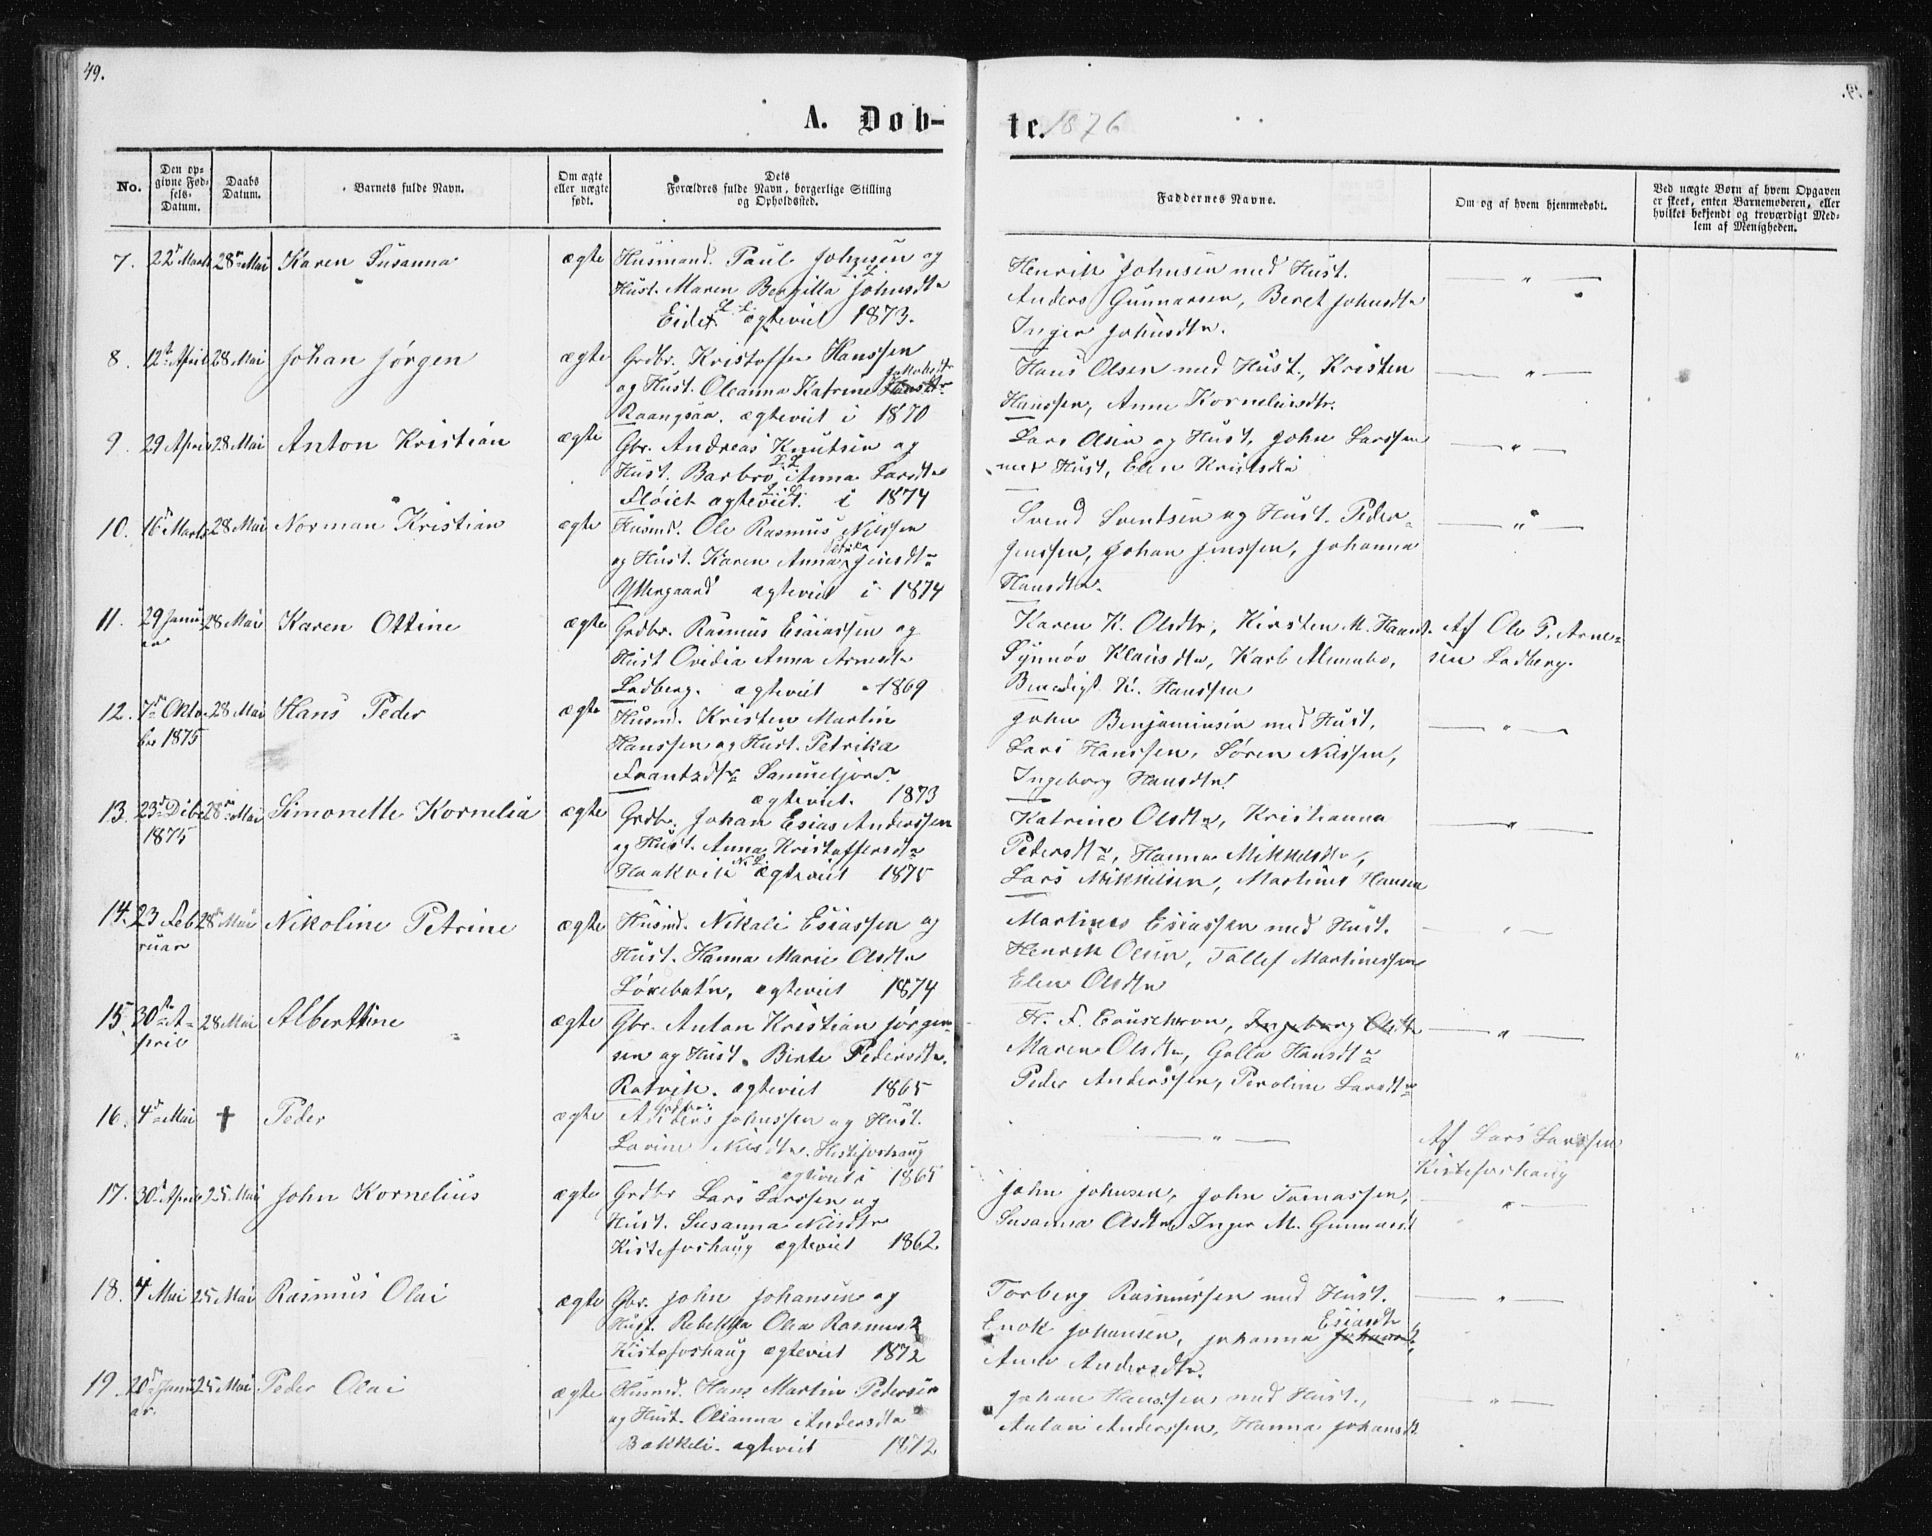 49.
A. Døb-
te. 1876
No.
Den op-
givne Fød-
sels-
Datum.
Daabs
Datum.
Barnets fulde Navn.
Om ægte
eller uægte
født.
Dets
Forældres fulde Navn, borgerlige Stilling
og Opholdssted.
Faddernes Navne.
Om og af hvem hjemmedøbt.
Ved uægte Børn af hvem Opgaven
er skeet, enten Barnemoderen, eller
hvilket bekjendt og troværdigt Med-
lem af Menigheden.
7. 22 Marts 28 Mai Karen Susanna ægte Husmand. Paul Johnsen og
Hust. Maren Bergitta Johnsdtr
Eidet ægteviet 1873.
Henrik Johnsen med Hust.
Anders Gunnarsen, Beret Johnsdtr
Inger Johnsdtr.
8. 12te April 28 Mai Johan Jørgen ægte Grdbr. Kristoffer Hanssen
og Hust. Oleanna Katrine
Raangsaa. ægteviet i 1870
Hans Olsen med Hust, Kristen
Hanssen, Anne Kornelusdtr.
9. 29 April 28 Mai Anton Kristian ægte Gbr. Andreas Knutsen og
Hust. Barbro Anna Larsdtr
Fløiet ægteviet. i 1874
Lars Olsen og Hust, John Larssen
med Hust, Elen
10. 16 Marts 28 Mai Norman Kristian ægte Husmd. Ole Rasmus Nilssen
og Hust. Karen Anna Jensdtr
Yttergaard ægteviet i 1874
Svend Svendsen og Hust. Peder
Jenssen, Johan Jenssen, Johanna
Hansdtr.
11. 29 Janu- 28 Mai Karen Ottine ægte Grdbr. Rasmus Esaiassen og
ar
Hust Ovidia Anna Arnesdtr
Ladberg. ægteviet 1869
Karen K. Olsdtr, Kirsten M. Hansd.
Synnøv Klausdtr, Karl
Benedigt K. Hanssen
Af Ole P. Arne-
sen Ladberg.
12. 7de Okto- 28 Mai Hans Peder ægte Husmd. Kristen Martin
ber 1875
Hanssen og Hust. Petrika
Frantzdtr Samueljord.
ægteviet. 1873
John Benjaminsen med Hust,
Lars Hanssen, Søren Nilssen,
Ingeborg Hansdtr.
13. 23 Debr 28 Mai Simonette Kornelia ægte Grdbr. Johan Esias Anderssen
1875
og Hust. Anna Kristoffersdtr
Haakvik ægteviet 1875
Katrine Olsdtr, Kristianna
Pedersdtr, Hanna Mikkelsdtr,
Lars Mikkelsen, Martinus Hansen
14. 23 Feb 28 Mai Nikoline Petrine ægte Husmd. Nikali Esiassen og
ruar
Hust. Hanna Marie Olsdtr
ægteviet 1874
Martines Esiassen med Hust.
Henrik Olsen, Tollef Martinessen
Elen Olsdtr
15. 30te A- 28 Mai Alberttine ægte Gbr. Anton Kristian Jørgen-
pril
sen og Hust. Birte Pedersdtr.
Ratvik. ægteviet 1865
H. F. Ingeborg Olsdtr
Maren Olsdtr, Golla Hansdtr
Peder Anderssen, Peroline Larsdtr
16. 4de Mai † Peder ægte Grdbr.
Anders Johnssen og Hust.
Lovine Nilsdtr. Kisteforshaug
ægteviet i 1865
Af Lars Larssen
Kisteforshaug
17. 30 April 25 Mai John Kornelius ægte Grdbr Lars Larssen og
Hust. Susanna Nilsdtr
Kisteforshaug ægteviet 1862.
John Johnsen, John Tomassen,
Susanna Olsdtr, Inger M. Gunnarsd
18. 4 Mai 25 Mai Rasmus Olai ægte Gbr. John Johansen og
Hust. Rebekka Olea Rasmusd
Kisteforshaug ægteviet 1872
Torberg Rasmussen med Hust.
Enok Johansen, Johanna Esiasdtr
Ane Andersdtr.
19. 20 Janu- 25 Mai Peder Olai ægte Husmd. Hans Martin Pedersen
ar.
og Hust. Olianna Andersdtr
Bakkeli. ægteviet 1872
Johan Hanssen med Hust.,
Antoni Anderssen, Hanna Johansdt.